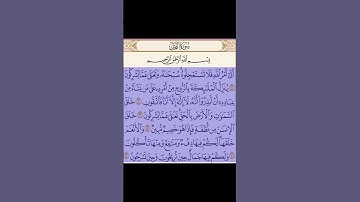 سورة النحل
بسم الله الرحمن الرحيم
أتى أمر الله فلا تستعجلوه سبحانه وتعالى عما يشركون
ينزل الملائكة بالروح من أمره على من يشاء من
عباده أن أنذروا أنه لا إله إلا أنا فاتقون خلق
السماوات والأرض بالحق تعالى عما يشركون خلق
الإنسان من نطفة فإذا هو خصيم مبين والأنعام
خلقها لكم فيها دفء ومنافع ومنها تأكلون
ولكم فيها جمال حين تريحون وحين تسرحون